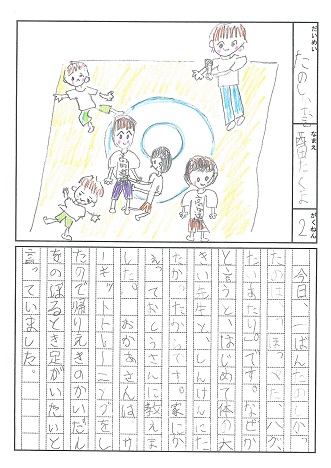 だいめい
たのしい
なまえ
番たくま
がくねん
2
今日、一ばんたのしかっ
たのは、
たいあたり」です。なぜか
と言うと、はじめて体の大
きい先生と、しんけんにた
たかったからです。家にか
えっておとうさんに教えま
した。おかあさんは、サ
ーキットトレーニングをし
たので帰りえきのかいだん
をのぼるとき足がいたいと
言っていました。